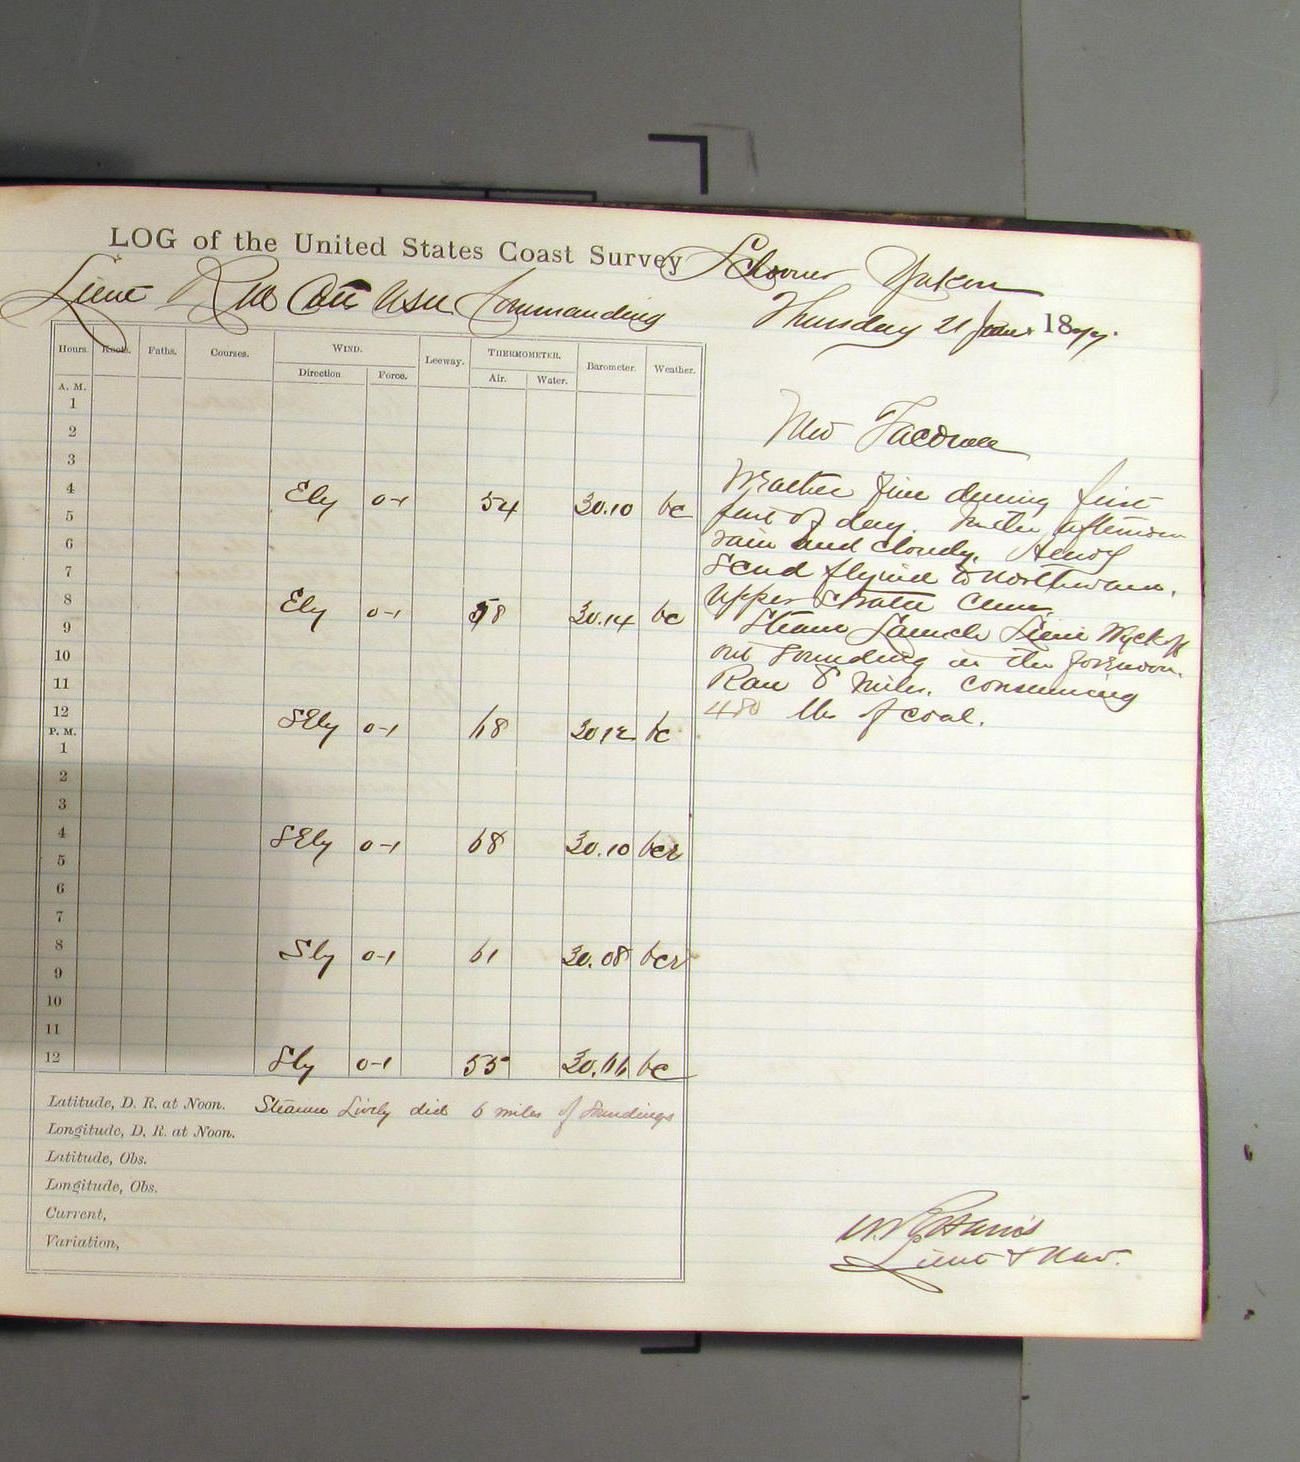 LOG of the United States Coast Survey Schooner Yukon
Lieut Commanding Thursday 21 June 1877.
Hours. Knots. Faths. Courses. WIND. Leeway. THERMOMETER. Barometer. Weather.
Direction Force. Air. Water.
A. M.
1
2
3
4 Ely 0-1 54 30.10 bc
5
6
7
8 Ely 0-1 58 30.14 bc
9
10
11
12 SEly 0-1 68 30.12 bc
P. M.
1
2
3
4 SEly 0-1 68 30.10 bcr
5
6
7
8 Sly 0-1 61 30.08 bcr
9
10
11
12 Sly 0-1 55 30.06 bc
Latitude, D. R. at Noon. Steamer Lively did 6 miles of soundings
Longitude, D. R. at Noon.
Latitude, Obs.
Longitude, Obs.
Current,
Variation,
New Tacoma
Weather fine during first
part of day. In the afternoon
rain and cloudy. Heavy
Scud flying to northward.
Upper Strata
Steam Launch Lieut Wyckoff
out sounding in the forenoon.
Ran 8 miles. consuming
480 lbs of coal.
Lieut & Nav.